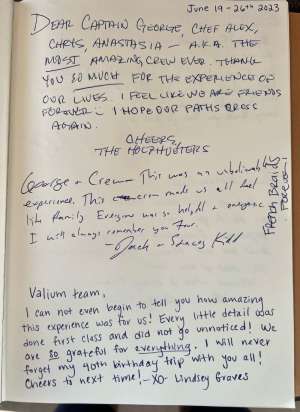 June 19-26th 2023
DEAR CAPTAIN GEORGE, CHEF ALEX,
CHRIS, ANASTASIA - A.K.A. THE
MOST AMAZING CREW EVER. THANK
YOU SO MUCH FOR THE EXPERIENCE OF
OUR LIVES. I FEEL LIKE WE ARE FRIENDS
FOREVER. I HOPE OUR PATHS CROSS
AGAIN.
CHEERS,
THE HOLZHUETERS
George + Crew - This was an unbelievable
experience. This crew made us all feel
like family. Everyone was so helpful +
I will always remember you four.
- Jack +
French Braids
Forever!
Valium team,
I can not even begin to tell you how amazing
this experience was for us! Every little detail was
done first class and did not go unnoticed! We
are so grateful for everything. I will never
forget my 40th birthday trip with you all!
Cheers to next time! - XO Lindsey Graves